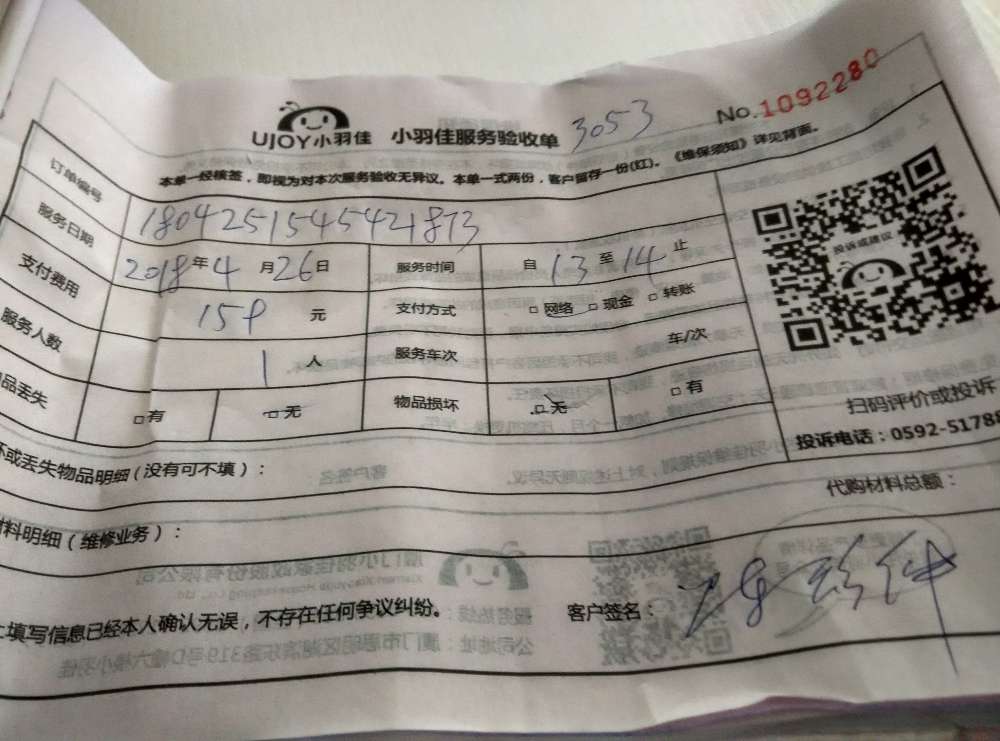 UJOY小羽佳 小羽佳服务验收单 3053 No.1092280
本单一经核签，即视为对本次服务验收无异议。本单一式两份，客户留存一份(红)。《维保须知》详见背面。
订单编号 1804251545421873
服务日期 2018年4月26日 服务时间 自13至14止
支付费用 159元 支付方式 □网络 □现金 □转账
服务人数 1人 服务车次 车/次
品丢失 □有 □无 物品损坏 □无 □有
投诉或建议
扫码评价或投诉
投诉电话：0592-5178
坏或丢失物品明细(没有可不填)：
代购材料总额：
材料明细(维修业务)：
上填写信息已经本人确认无误，不存在任何争议纠纷。 客户签名：